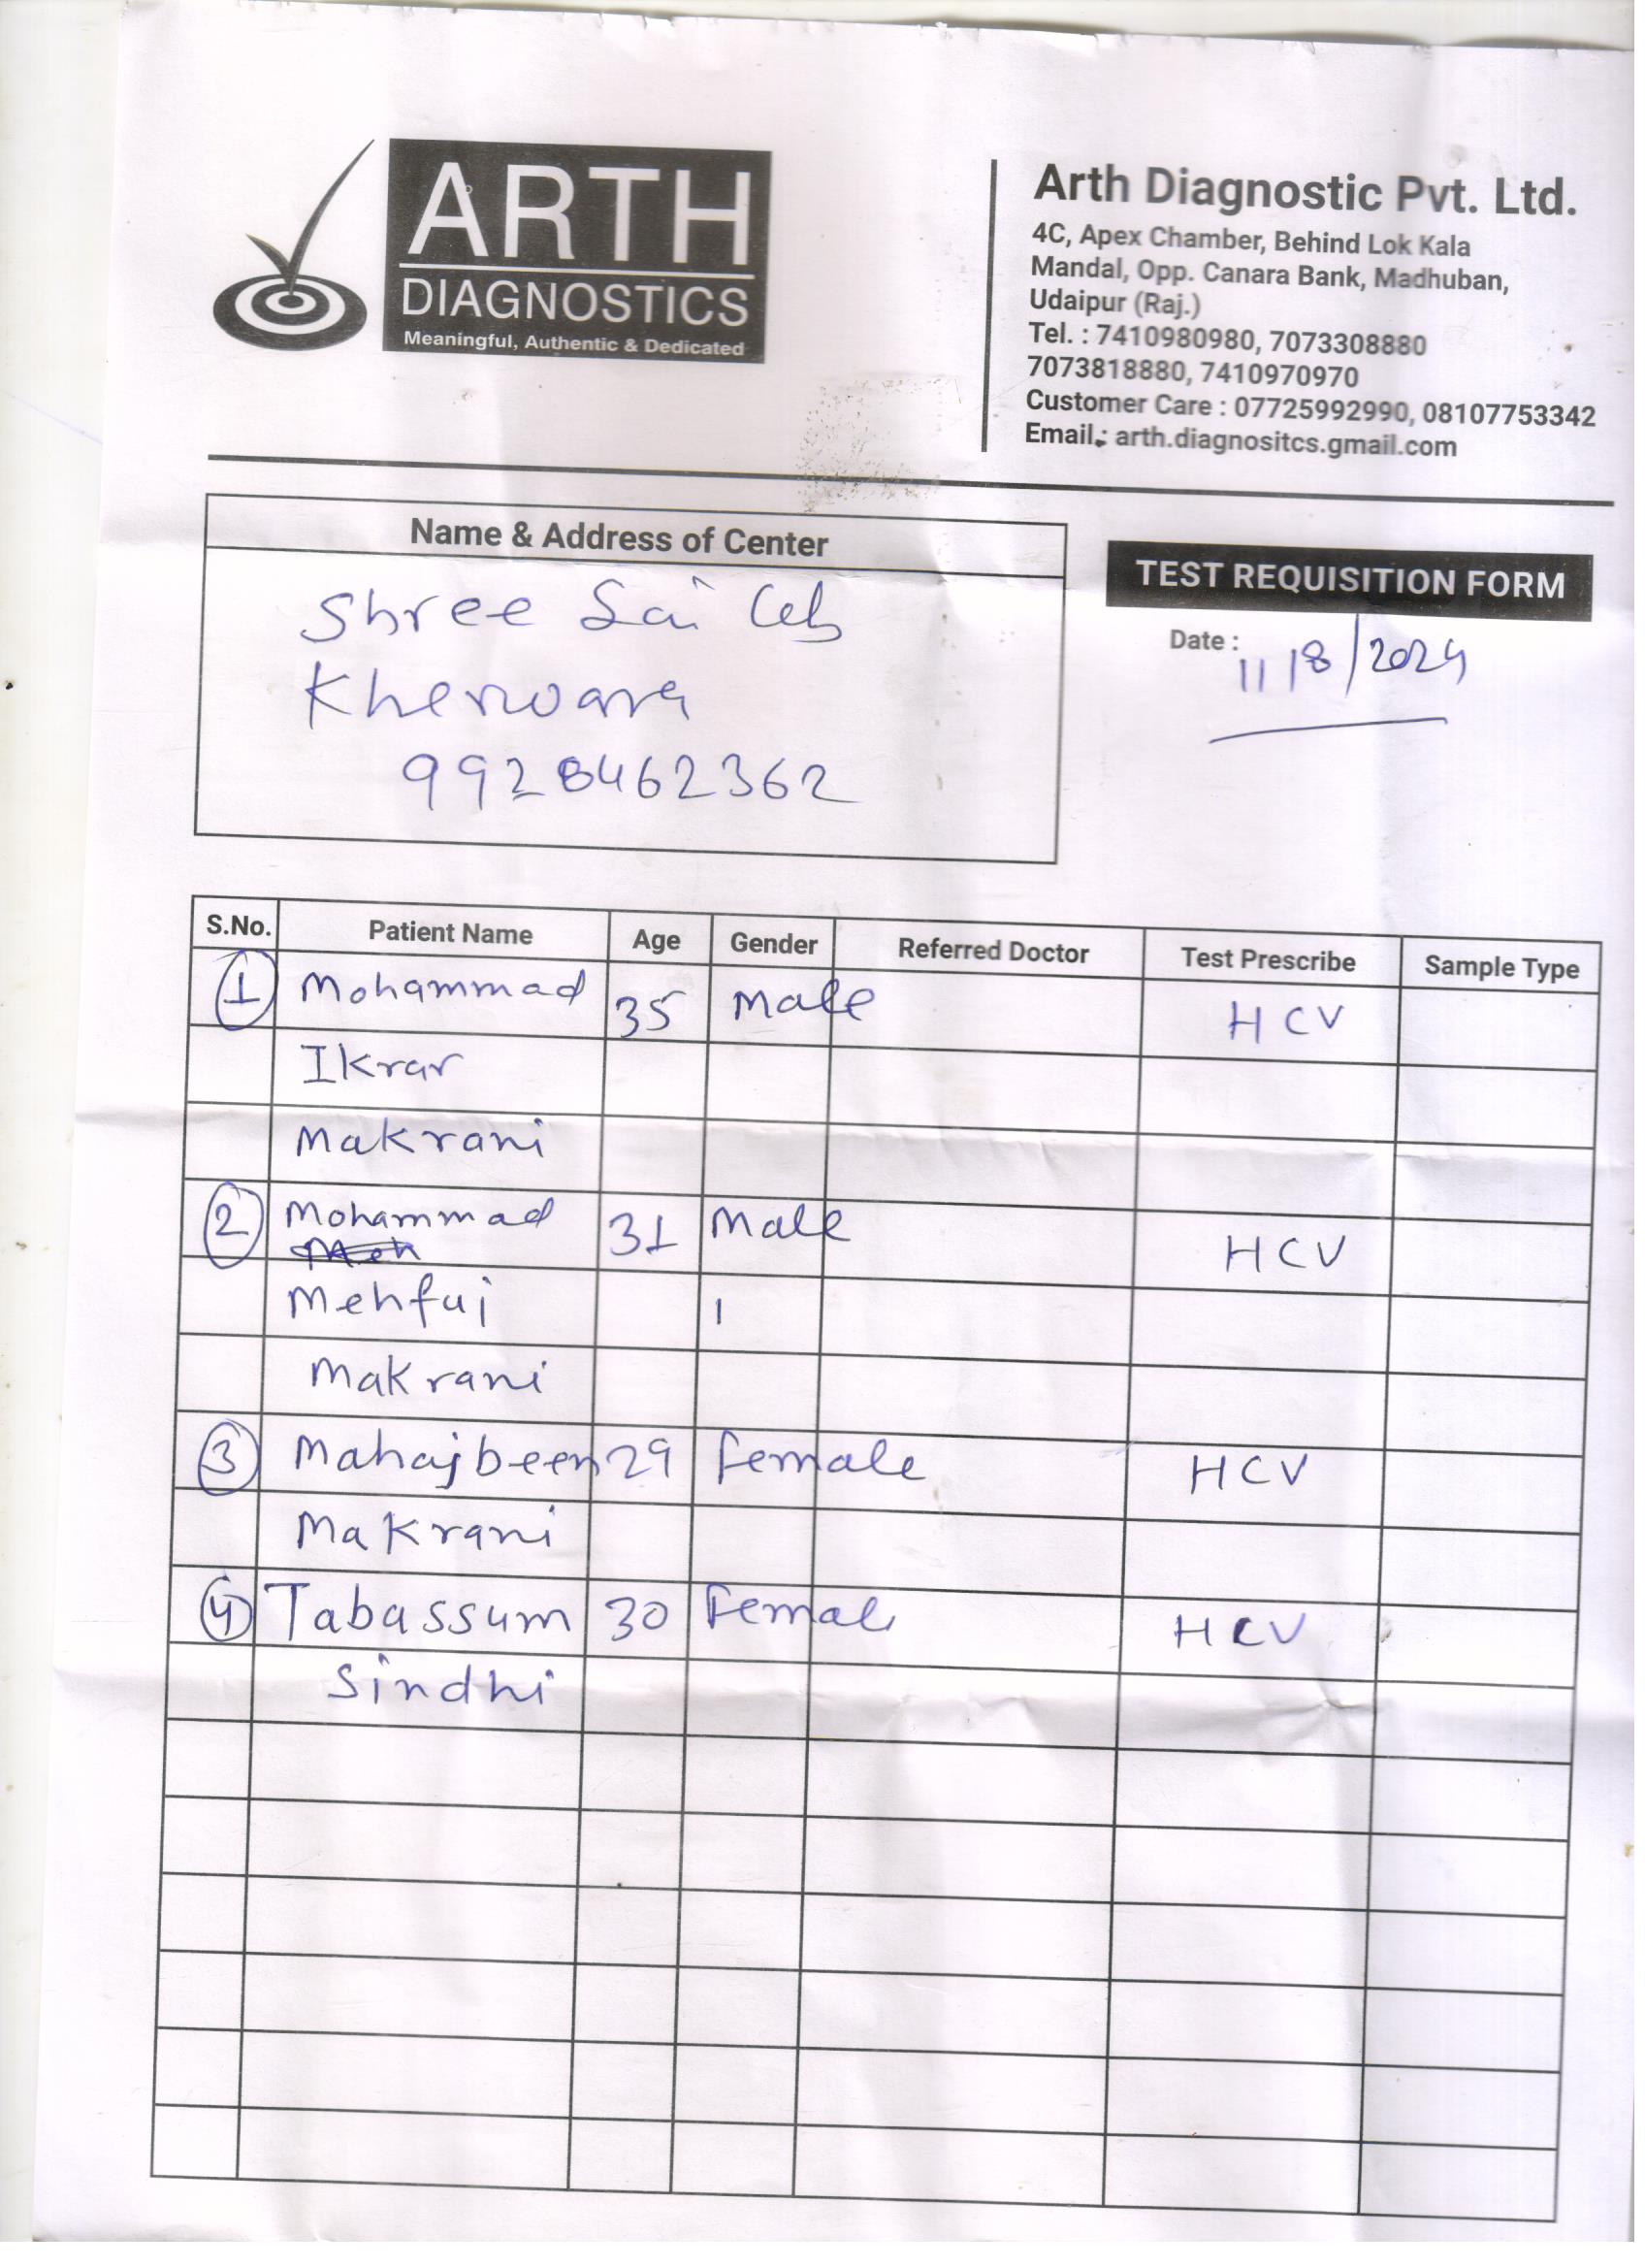 ARTH
DIAGNOSTICS
Meaningful, Authentic & Dedicated
Arth Diagnostic Pvt. Ltd.
4C, Apex Chamber, Behind Lok Kala
Mandal, Opp. Canara Bank, Madhuban,
Udaipur (Raj.)
Tel. : 7410980980, 7073308880
7073818880, 7410970970
Customer Care : 07725992990, 08107753342
Email.: arth.diagnositcs.gmail.com
Name & Address of Center
Shree Sai Lab
Kherwara
9928462362
TEST REQUISITION FORM
Date : 11/8/2024
S.No. Patient Name Age Gender Referred Doctor Test Prescribe Sample Type
1 Mohammad 35 Male HCV
Ikrar
Makrani
2 Mohammad 31 Male HCV
Mehfuj
Makrani
3 Mahajbeen 29 Female HCV
Makrani
4 Tabassum 30 Female HCV
Sindhi